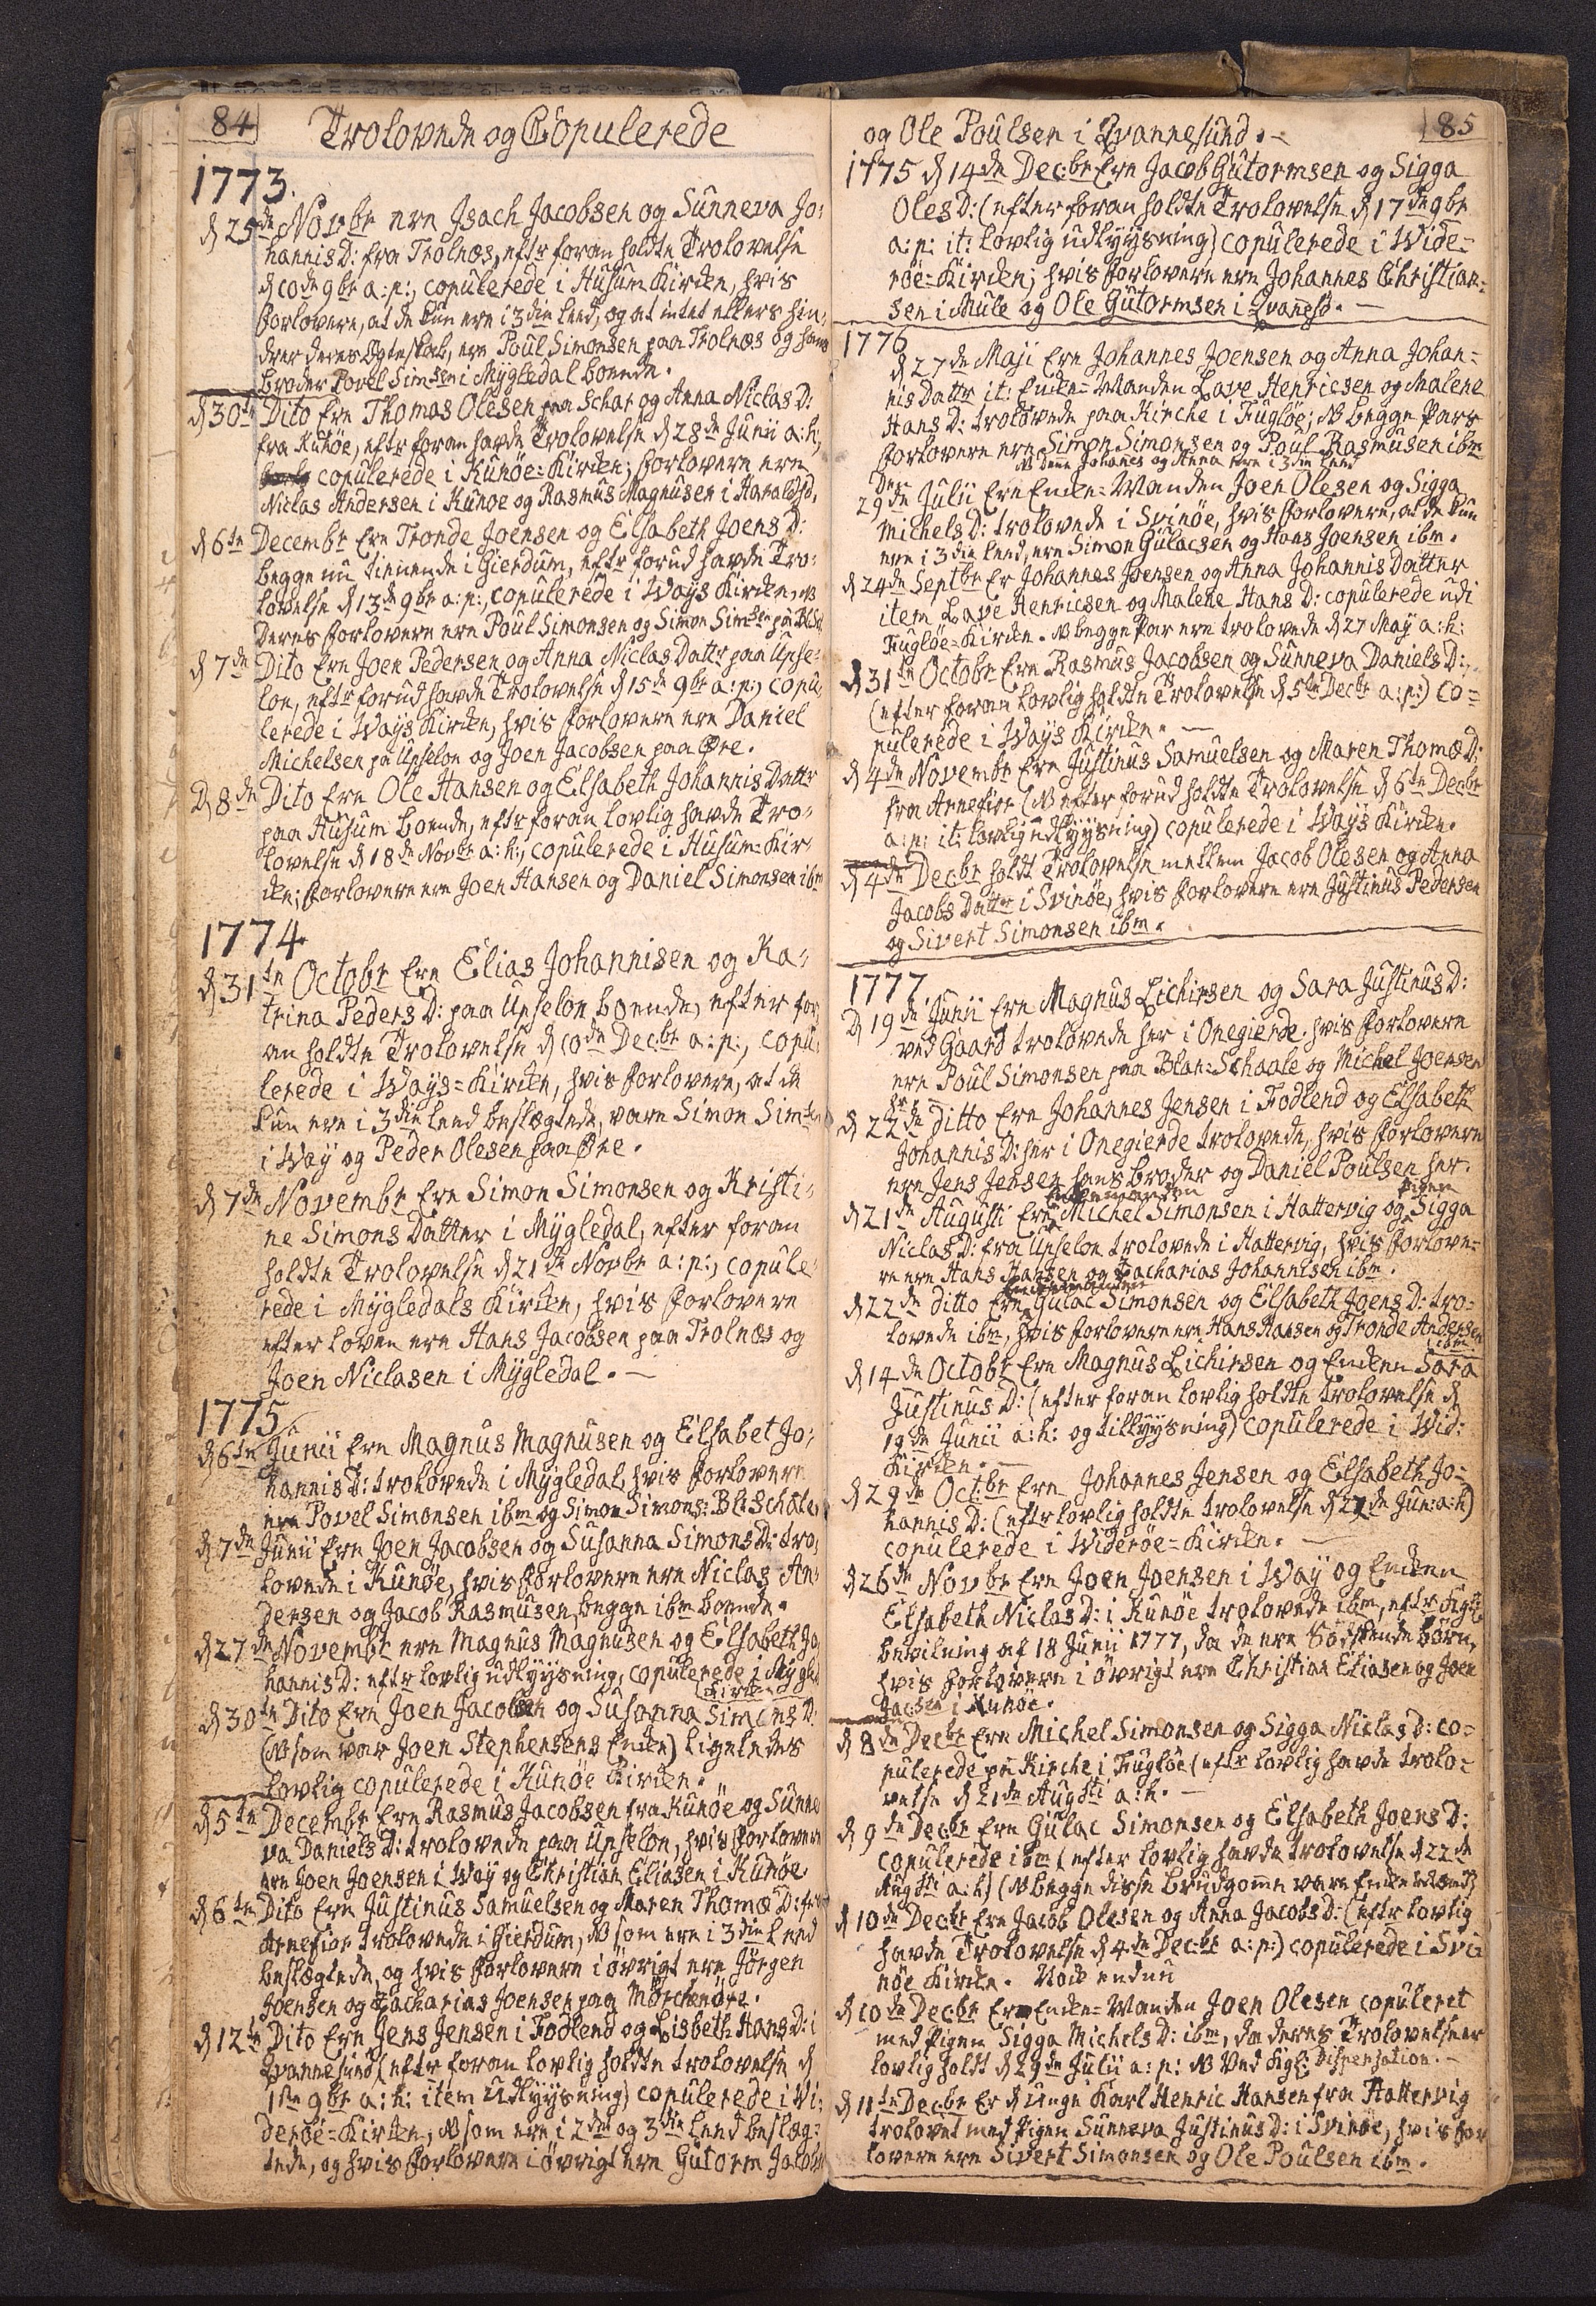 84
Trolovede og Copulerede
1773.
d 25de Novbr ere Jsach Jacobsen og Sunneva Jo-
hannis D: fra Trolnæs, eftr foran holdte Trolovelse
d 10de 9br a: p:, copulerede i Husum Kirken, hvis
Forlovere, at de kun ere i 3die Leed, og at intet ellers hin-
drer deres Ægteskab, ere Poul Simonsen paa Trolnæs og hans
Broder Povel Simsen i Mygledal boende.
d 30te Dito Ere Thomas Olesen paa Schar og Anna Niclas D:
fra Kunöe, eftr foran havde Trolovelse d 28de Junii a: h:,
copulerede i Kunöe-Kirken; Forlovere ere
Niclas Andersen i Kunöe og Rasmus Magnusen i Haraldsd.
d 6te Decembr Ere Tronde Joensen og Elsabeth Joens D:
begge nu tienende i Gierdum, eftr forud havde Tro-
lovelse d 13de 9br a: p:, copulerede i Ways Kirken, NB
Deres Forlovere ere Poul Simonsen og Simon Simsen på Bl: Sch
d 7de Dito Ere Joen Pedersen og Anna Niclas Dattr paa Upse-
lon, eftr forud havde Trolovelse d 15de 9br a: p:, copu-
lerede i Ways Kirken, hvis Forlovere ere Daniel
Michelsen på Upselon og Joen Jacobsen paa Øre.
D 8de Dito Ere Ole Hansen og Elsabeth Johannis Dattr
paa Husum boende, eftr foran lovlig havde Tro-
lovelse d 18de Novbr a: h:, copulerede i Husum-Kir-
ken; Forlovere ere Joen Hansen og Daniel Simonsen ibm
1774.
d 31te Octobr Ere Elias Johannisen og Ka-
trina Peders D: paa Upselon boende, efter for
an holdte Trolovelse d 10de Decbr a: p:, copu-
lerede i Ways-Kirken, hvis Forlovere, at de
kun ere i 3die Leed beslægtede, vare Simon Simsen
i Way og Peder Olesen paa Øre.
d 7de Novembr Ere Simon Simonsen og Kristi-
ne Simons Datter i Mygledal, efter foran
holdte Trolovelse d 21de Novbr a: p:, copule-
rede i Mygledals Kirken, hvis Forlovere
efter Loven ere Hans Jacobsen paa Trolnæs og
Joen Niclasen i Mygledal. —
1775
d 6te Junii Ere Magnus Magnusen og Elsabet Jo-
hannis D: trolovede i Mygledal, hvis Forlovere
ere Povel Simonsen ibm og Simon Simons: Bl: Schale
d 7de Junii Ere Joen Jacobsen og Susanna Simons D: tro-
lovede i Kunöe, hvis Forlovere ere Niclas An-
dersen og Jacob Rasmusen, begge ibm boende.
d 27de Novembr ere Magnus Magnusen og Elsabeth Jo-
hannis D: eftr lovlig udlyysning, copulerede i Mygled
Kirken
d 30te Dito Ere Joen Jacobsen og Susanna Simons D.
(NB som var Joen Stephensens Enke) ligeledes
lovlig copulerede i Kunöe Kirken.
d 5te Decembr Ere Rasmus Jacobsen fra Kunöe og Sunne
va Daniels D: trolovede paa Upselon, hvis Forlovere
ere Joen Joensen i Way og Christian Eliasen i Kunöe
d 6te Dito Ere Justinus Samuelsen og Maren Thomæ D: fra
Arnefior trolovede i Gierdum, NB som ere i 3die Leed
beslægtede, og hvis Forlovere i övrigt ere Jörgen
Joensen og Zacharias Joensen paa Mörchenöre.
d 12te Dito Ere Jens Jensen i Fodlend og Lisbeth Hans D: i
Qvannesund (eftr foran lovlig holdte trolovelse d
1ste 9br a: h: item Udlyysning) copulerede i Vi-
deröe-Kirken, NB som ere i 2den og 3die Leed beslæg-
tede, og hvis Forlovere i övrigt ere Gutorm Jacobs
85
og Ole Poulsen i Qvannesund. —
1775 d 14de Decbr Ere Jacob Gutormsen og Sigga
Oles D: (efter foran holdte Trolovelse d 17de 9br
a: p: it: lovlig udlyysning) copulerede i Wide-
röe-Kirken; hvis Forlovere ere Johannes Christian-
sen i Mule og Ole Gutormsen i Qvanesd. —
1776
d 27de Maji Ere Johannes Joensen og Anna Johan-
nis Dattr it: Enke-Manden Lave Henricsen og Malene
Hans D: trolovede paa Kirche i Fuglöe; NB begge Pars
Forlovere ere Simon Simonsen og Poul Rasmusen ibm
NB denne Johannes og Anna ere i 3die Leed
Den
29de Julii Ere Enke-Manden Joen Olesen og Sigga
Michels D: trolovede i Svinöe, hvis Forlovere, at de kun
ere i 3die Leed, ere Simon Gulacsen og Hans Joensen ibm.
d 24de Septbr Er Johannes Joensen og Anna Johannis Datter
item Lave Henricsen og Malene Hans D: copulerede udi
Fuglöe-Kirken. NB begge Par ere trolovede d 27 May a: h:
d 31te Octobr Ere Rasmus Jacobsen og Sunneva Daniels D:,
(efter foran lovlig holdte Trolovelse d 5te Decbr a: p:) co-
pulerede i Ways Kirken. —
d 4de Novembr Ere Justinus Samuelsen og Maren Thomæ D:
fra Arnefior (NB efter forud holdte Trolovelse d 6te Decbr
a: p: it: lovlig udlyysning) copulerede i Ways Kirken.
d 4de Decbr holdt Trolovelse mellem Jacob Olesen og Anna
Jacobs Dattr i Svinöe, hvis Forlovere ere Justinus Pedersen
og Sivert Simonsen ibm.
1777
D 19de Junii Ere Magnus Lichirsen og Sara Justinus D:
ved Gaard trolovede her i Onegierde, hvis Forlovere
ere Poul Simonsen paa Blan: Schaale og Michel Joensen
her
d 22de ditto Ere Johannes Jensen i Fodlend og Elsabeth
Johannis D: her i Onegierde trolovede, hvis Forlovere
ere Jens Jensen hans broder og Daniel Poulsen her.
Enkemanden Pigen
d 21de Augusti Ere Michel Simonsen i Hattervig og Sigga
Niclas D: fra Upselon trolovede i Hattervig, hvis Forlove-
re ere Hans Hansen og Zacharias Johannisen ibm.
Enkemanden
d 22de ditto Ere Gulac Simonsen og Elsabeth Joens D: tro-
lovede ibm, hvis Forlovere ere Hans Hansen og Tronde Andersen
ibm.
d 14de Octobr Ere Magnus Lichirsen og Enken Sara
Justinus D: (efter foran lovlig holdte trolovelse d
19de Junii a: h: og tillyysning) copulerede i Wid:
Kirken. —
d 29de Octbr Ere Johannes Jensen og Elsabeth Jo-
hannis D: (eftr lovlig holdte trolovelse d 22de Jun: a: h)
copulerede i Wideröe-Kirken. —
d 26de Novbr Ere Joen Joensen i Way og Enken
Elsabeth Niclas D: i Kunöe trolovede ibm, eftr Kgl:
bevilning af 18 Junii 1777, da de ere Södskende börn,
hvis Forlovere i övrigt ere Christian Eliasen og Joen
Jacsen i Kunöe.
d 8de Decbr Ere Michel Simonsen og Sigga Niclas D: co-
pulerede på Kirche i Fuglöe (eftr lovlig havde trolo-
velse d 21de Augsti a: h. —
d 9de Decbr Ere Gulac Simonsen og Elsabeth Joens D:
copulerede ibm (efter lovlig havde trolovelse d 22de
Augsti a: h) (NB begge disse Brudgomme vare Enke Mænd)
d 10de Decbr Ere Jacob Olesen og Anna Jacobs D: (eftr lovlig
havde Trolovelse d 4de Decbr a: p:) copulerede i Svi-
nöe Kirke. Nock endnu
d 10de Decbr Er Enke-Manden Joen Olesen copuleret
med Pigen Sigga Michels D: ibm, da deres Trolovelse er
lovlig holdt d 29de Julii a: p: NB Ved Kgl: Dispensation. —
d 11te Decbr Er d Unge Karl Henric Hansen fra Hattervig
trolovet med Pigen Sunneva Justinus D: i Svinöe, hvis For
lovere ere Sivert Simonsen og Ole Poulsen ibm.